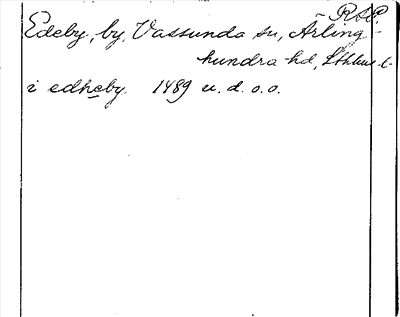 Edeby, by, Vassunda sn, Ärling-
hundra hd, Sthlms l.
i edheby 1489 u. d. o. o.